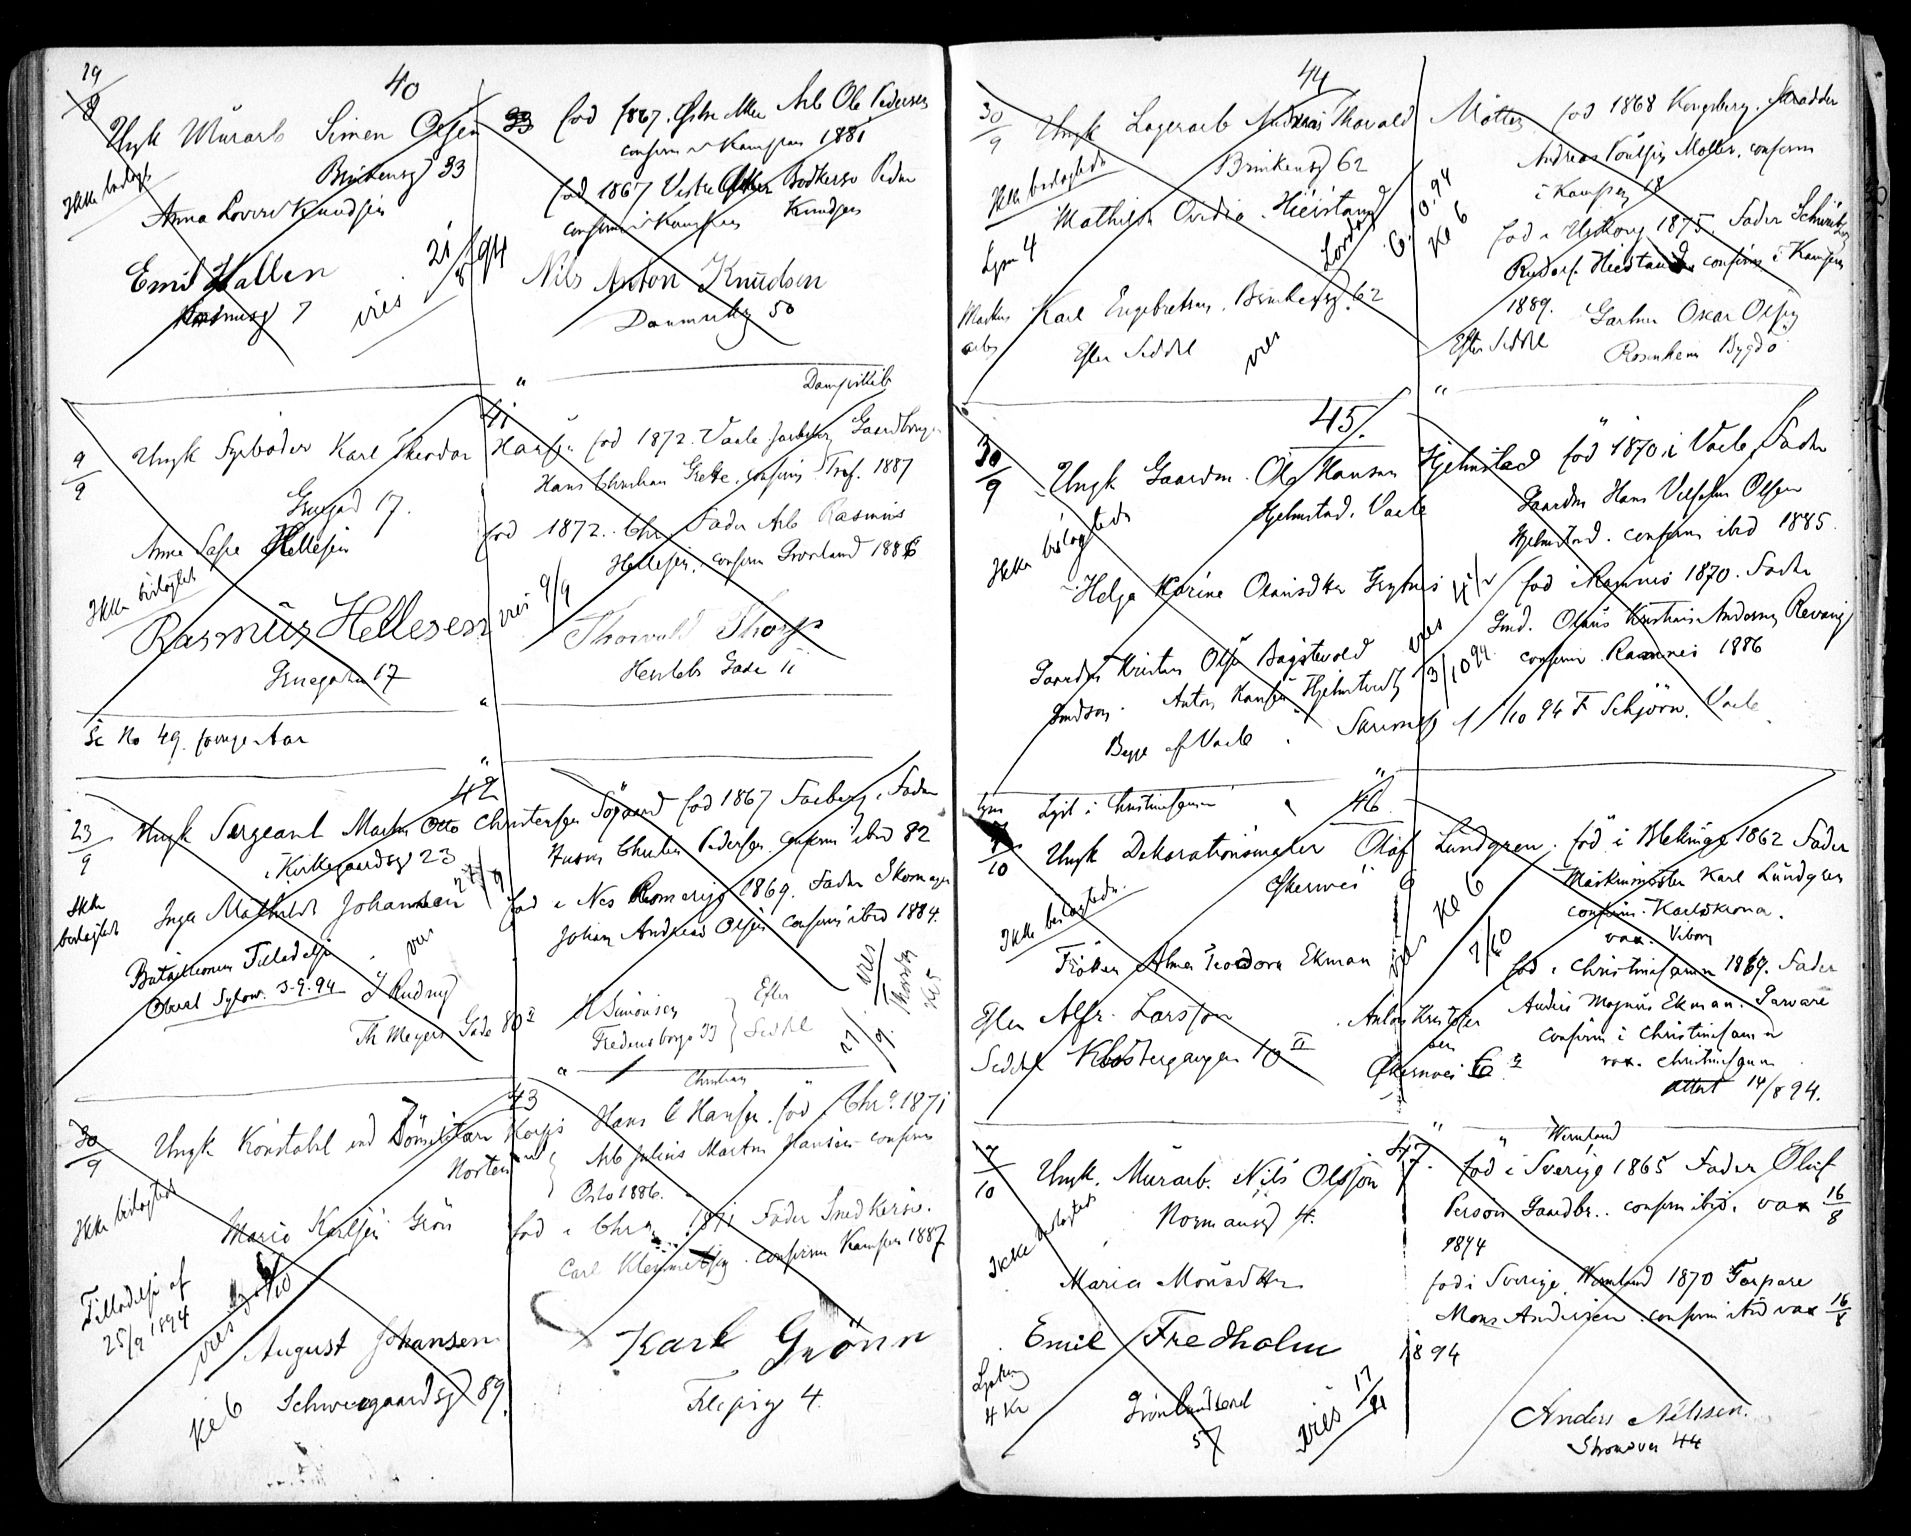 19/8
40
Ungk Murarb Simen Olsen 33
Brinkensgd 33
Ikke beslægt
Anna Lovise Knudsen
Emil Hallen
7
vies 21/8 94
fød 1867. Østre Aker Arb Ole Pedersen
confirm i Kampen 1881
fød 1867 Vestre Aker Bødkersv Peder
Knudsen
confirm i Kampen
Nils Anton Knudsen
Danmarksg 50
"
41
9/9
Ungk Karl Theodor Hansen fød 1872. Vaale Jarlsberg Gaardbruger
Hans Christian Grette. confirm. 1887
Gruegad 17.
Anna Hellesen
fød 1872. Chr. Fader Arb Rasmus
Hellesen. confirm Grønland 1886
Ikke beslægtet
vies 9/9
Rasmus Hellesen
Gruegaden 17
Thorvald Thorp
Herslebs Gade 11
"
Se No 49. forrige Aar
"
42
23/9
Ungk Sergeant Martin Otto Christensen Søgaard fød 1867 Faaberg. Fader
i Kirkegaardsgd 23
Husm Christen Pedersen. confirm ibid 82
Ikke beslægtet
Inga Mathilde Johansen 27/9
fød i Nes Romerige 1869. Fader Skomager
Johan Andreas Olsen confirm ibid 1884.
Batallionens Tilladelse
Oberst Sylow. 3-9.94
vies
J Rudny
Th Meyers Gade
H Simonsen
Fredensborgv 33
Efter
Seddel
vies 27/9. Thorsdag
Kl 5
"
43
30/9
Ungk Konstabel ved Korps Hans C Hansen. fød i Chr.a 1871
Christian
Horten
Arb Julius Martin Hansen confirm
Oslo 1886.
Ikke beslægtet
Marie Karlsen Grøn
fød i Chr.a 1871 Fader Snedkersv.
Carl Klemmetsen. confirm Kampen 1887
Tilladelse af
25/9 1894
vies 6/10
Kl 6
August Johansen
Schweigaardsgd 89.
Karl Grønn
4.
44
30/9
Ungk Lagerarb Andreas Thorvald Møller fød 1868 Kongsberg. Skrædder
Brinkensgd 62
Andreas Poulsen Møller. confirm
i Kampen 18
Ikke beslægtede
Lysn 4
Mathilde Ovidia Hiestand
Lørdag 6.10.94
Kl 6
fød i Tyskong 1875. Fader
Rudolf Hiestand confirm i Kampen
1889.
Karl Engebretsen. Brinkensgd. 62
Efter Seddel
vies
Efter Seddel
Gartner Oscar Olsen
Rosenheim Bygdø
"
45.
30/9
Ungk Gaardm. Ole Hansen Hjelmstad fød 1870 i Vaale, Fader
Hjelmstad. Vaale
Gaardm Hans Vilhelm Olsen
Hjelmstad. confirm ibid 1885.
Ikke beslægtede
Helga Karine Olausdtr
fød i Ramnes 1870. Fader
Gmd. Olaus Kristian Andersen
confirm. Ramnes 1886
Gaardm Kristian Olsen Bagstevold
vies 3/10 94.
Gmdsøn. Anton Hansen Hjelmstvedt
Begge af Vaale
1/10 94 F Schjørn. Vaale
"
46.
Lyst i Christinehamn
7/10
Ungk Dekorationsmaler Olof Lundgren. fød i Blekinge 1862 Fader
Økernvei 6
Maskinmester Karl Lundgren
confirm. Karlskrona.
Ikke beslægtede.
Kl 6
7/10
vax. Viborg
Frøken Alma Teodora Ekman
fød i Christinehamn 1869. Fader
Anders Magnus Ekman. Garvare
confirm i Christinehamn
vax. Christinehamn
attest 14/8 94.
Efter Alfr. Larsson
Seddel Klostergangen 10 II
Anton Kristofer
sen
Økernvei 6.
47.
"
7/10
Ungk. Murarb. Nils Olsson fød i Sverige 1865 Fader Oluf
Wermland
Normansgd 4.
Person Gaardbr.. confirm ibid. vax 16/8
1894
Ikke beslægtet
Maria Monsdtr
fød i Sverige. Wermland 1870 Torpare
Mons Andersen confirm ibid vax 16/8
1894
Emil Fredholm
Lysning
4 Kr
57
vies 17/
Anders Nilssen.
44